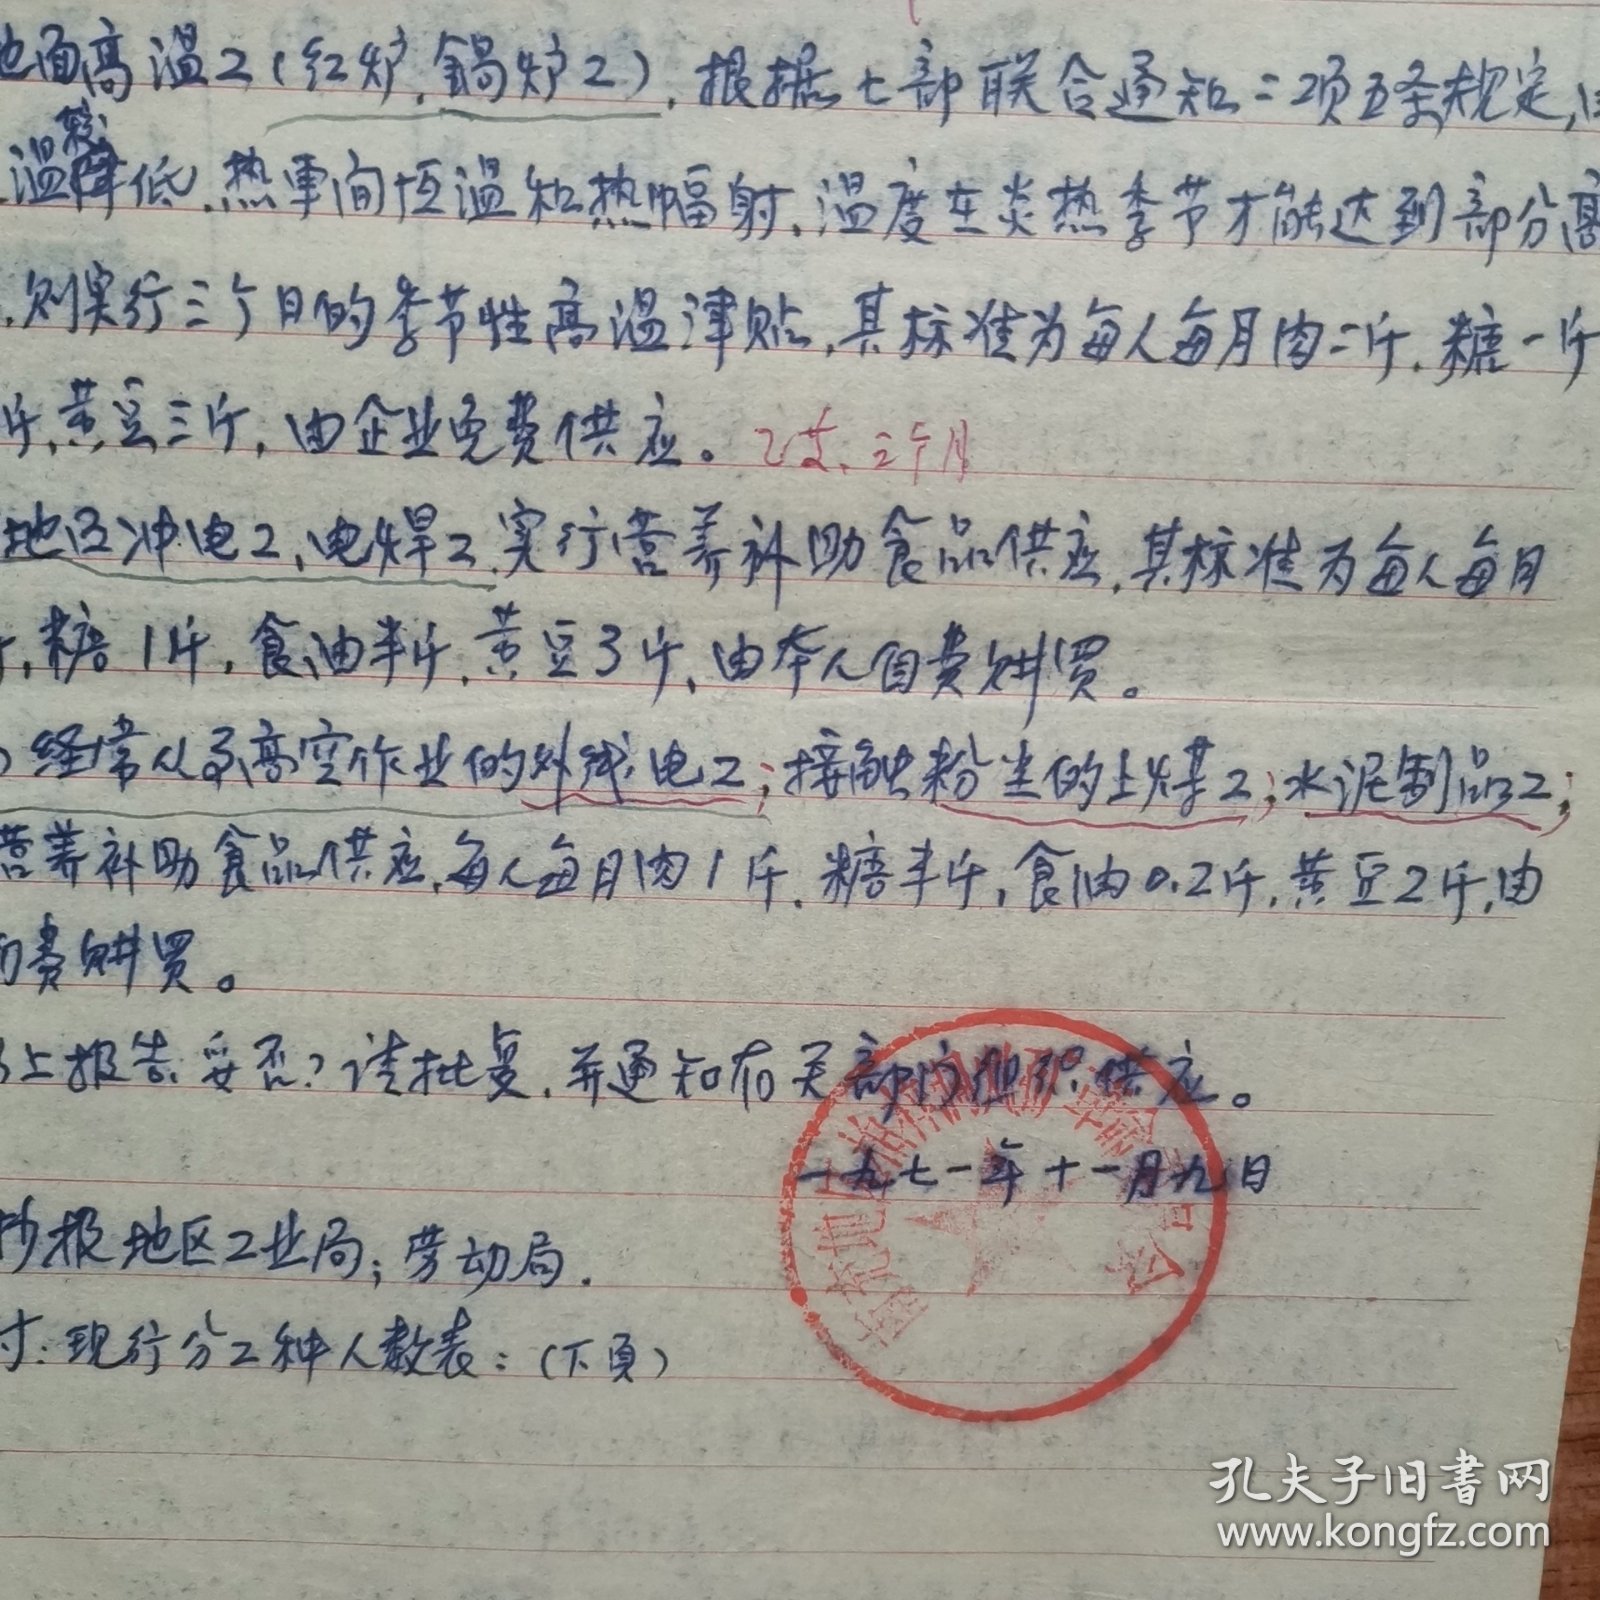 地面高温工(红炉,鍋炉工),根据七部联合通知二项五条规定,
温较降低,热車间恒温和热幅射,温度在炎热季节才能达到部分高
,则实行三个月的季节性高温津贴,其标准为每人每月肉二斤,糖一斤
斤,黄豆三斤,由企业免费供应。 三个月
地区冲电工,电焊工,实行营养补助食品供应,其标准为每人每月
,糖1斤,食油半斤,黄豆3斤,由本人自费购买。
经常从事高空作业的外线电工;接触粉尘的上煤工;水泥制品工;
营养补助食品供应,每人每月肉1斤,糖半斤,食油0.2斤,黄豆2斤,由
自费购买。
以上报告妥否?请批复,并通知有关部门组织供应。
一九七一年十一月九日
抄报地区工业局;劳动局.
附:现行分工种人数表:(下页)
孔夫子旧书网
www.kongfz.com